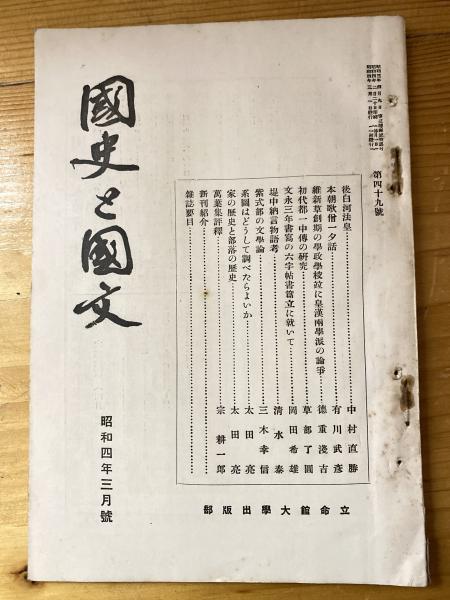 昭和四年三月一日發行
第四十九號
後白河法皇 中村直勝
本朝歌僧一夕話 有川武彦
維新草創期の學政學校竝に皇漢兩學派の論爭 德重淺吉
初代都一中傳の研究 草部了圓
文永三年書寫の六字帖書篇立に就いて 岡田希雄
堤中納言物語考 清水泰
紫式部の文學論 三木幸信
系圖はどうして調べたらよいか 太田亮
家の歷史と部落の歷史 太田亮
萬葉集評釋 宗耕一郎
新刊紹介
雜誌要目
立命館大學出版部
國史と國文
昭和四年三月號